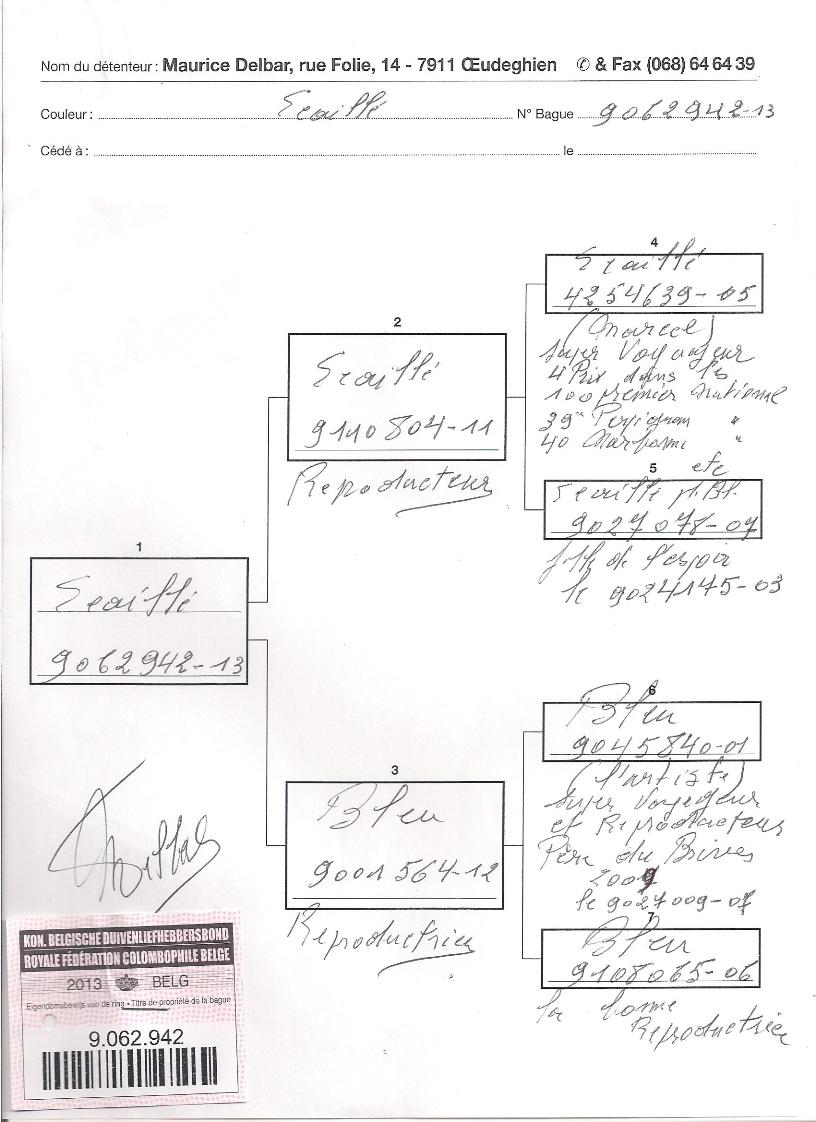 Nom du détenteur : Maurice Delbar, rue Folie, 14 - 7911 Œudeghien ✆ & Fax (068) 64 64 39
Couleur : Ecaillé N° Bague 9062942-13
Cédé à : le
4
Ecaillé
4254639-05
(Marcel)
Super Voyageur
4 Prix dans les
100 premier National
39e Perpignan "
40 Narbonne "
etc
2
Ecaillé
9110804-11
Reproducteur
5
Ecaillé pl. Bl.
9027078-07
fille de l'espoir
le 9024145-03
1
Ecaillé
9062942-13
6
Bleu
9045840-01
(l'artiste)
Super Voyageur
et Reproducteur
Père du Brives
2009
le 9027009-07
3
Bleu
9001564-12
Reproductrice
7
Bleu
9108065-06
la bonne
Reproductrice
Delbar
KON. BELGISCHE DUIVENLIEFHEBBERSBOND
ROYALE FÉDÉRATION COLOMBOPHILE BELGE
2013 BELG
Eigendomsbewijs van de ring • Titre de propriété de la bague
9.062.942